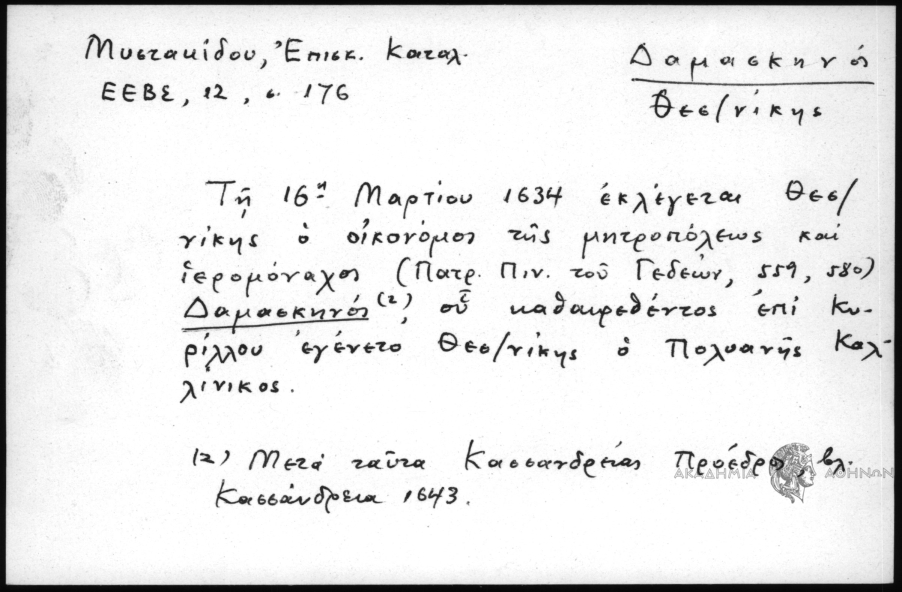 Μυστακίδου, Ἐπισκ. Καταλ.
ΕΕΒΣ, 12, σ. 176
Δαμασκηνός
Θεσ/νίκης
Τῇ 16ῃ Μαρτίου 1634 ἐκλέγεται Θεσ/
νίκης ὁ οἰκονόμος τῆς μητροπόλεως καί
ἱερομόναχος (Πατρ. Πιν. τοῦ Γεδεών, 559, 580)
Δαμασκηνός (2), οὗ καθαιρεθέντος ἐπί Κυ-
ρίλλου ἐγένετο Θεσ/νίκης ὁ Πολυανῆς Καλ-
λίνικος.
(2) Μετά ταῦτα Κασσανδρείας Πρόεδρος, βλ.
Κασσάνδρεια 1643.
ΑΚΑΔΗΜΙΑ ΑΘΗΝΩΝ